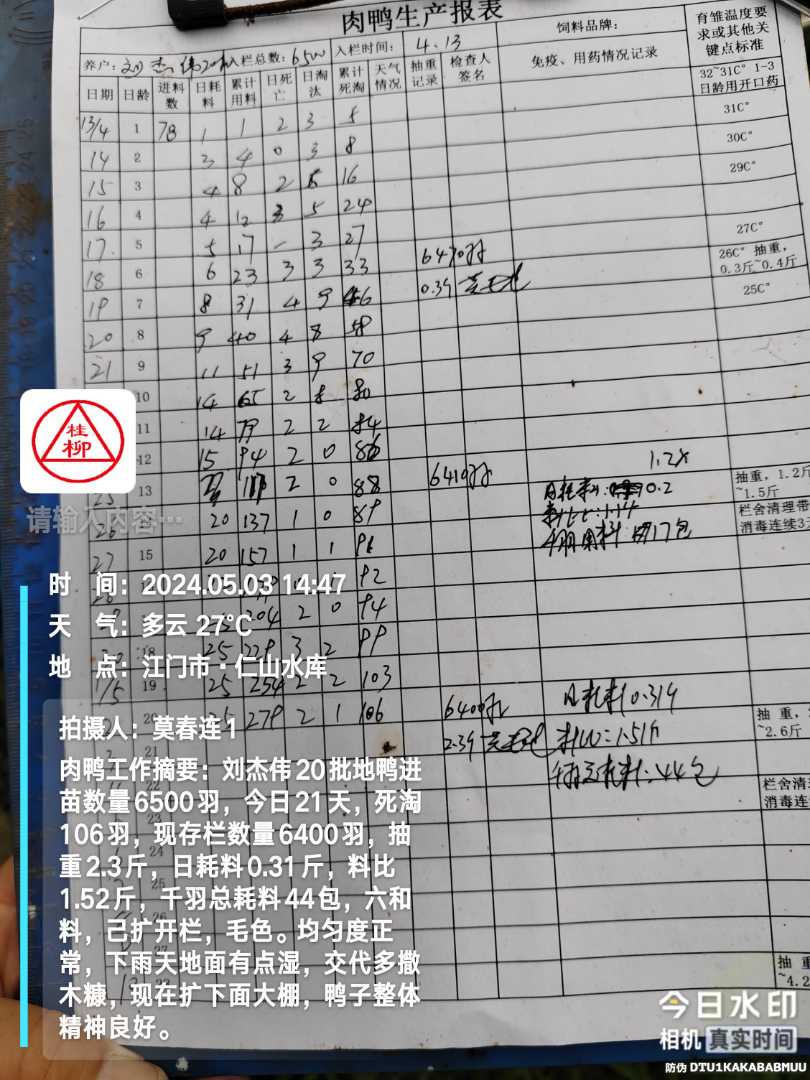 肉鸭生产报表
养户: 刘杰伟20批 入栏总数: 6500 入栏时间: 4.13 饲料品牌: 育雏温度要求或其他关键点标准
日期 日龄 进料数 日耗料 累计用料 日死亡 日淘汰 累计死淘 天气情况 抽重记录 检查人签名 免疫、用药情况记录 32~31C° 1-3日龄用开口药
13/4 1 78 1 1 2 3 5 31C°
14 2 3 4 0 3 8 30C°
15 3 4 8 2 16 29C°
16 4 4 12 3 5 24
17 5 5 17 – 3 27 27C°
18 6 6 23 3 3 33 6470羽 26C° 抽重,0.3斤~0.4斤
19 7 8 31 4 9 46 0.39 25C°
20 8 9 40 4 8 58
21 9 11 51 3 9 70
10 14 65 2 8 80
11 14 79 2 2 84
12 15 94 2 0 86
13 2 0 88 6410羽 抽重, 1.2斤~1.5斤
20 137 1 0 89 栏舍清理带
消毒连续3天
27 15 20 157 1 1
92
204 2 0 94
18 25 229 3 2 99
1/5 19 25 254 2 2 103
25 279 2 1 106 6400羽 日耗料0.31斤 抽重,
21 2.3斤 ~2.6斤
44包
22 栏舍清理
消毒连续
25
26
27
抽重
~4.2
桂柳
请输入内容…
时 间: 2024.05.03 14:47
天 气: 多云 27℃
地 点: 江门市·仁山水库
拍摄人: 莫春连1
肉鸭工作摘要: 刘杰伟20批地鸭进
苗数量6500羽, 今日21天, 死淘
106羽, 现存栏数量6400羽, 抽
重2.3斤, 日耗料0.31斤, 料比
1.52斤, 千羽总耗料44包, 六和
料, 己扩开栏, 毛色。均匀度正
常, 下雨天地面有点湿, 交代多撒
木糠, 现在扩下面大棚, 鸭子整体
精神良好。
今日水印
相机 真实时间
防伪 DTU1KAKABABMUU